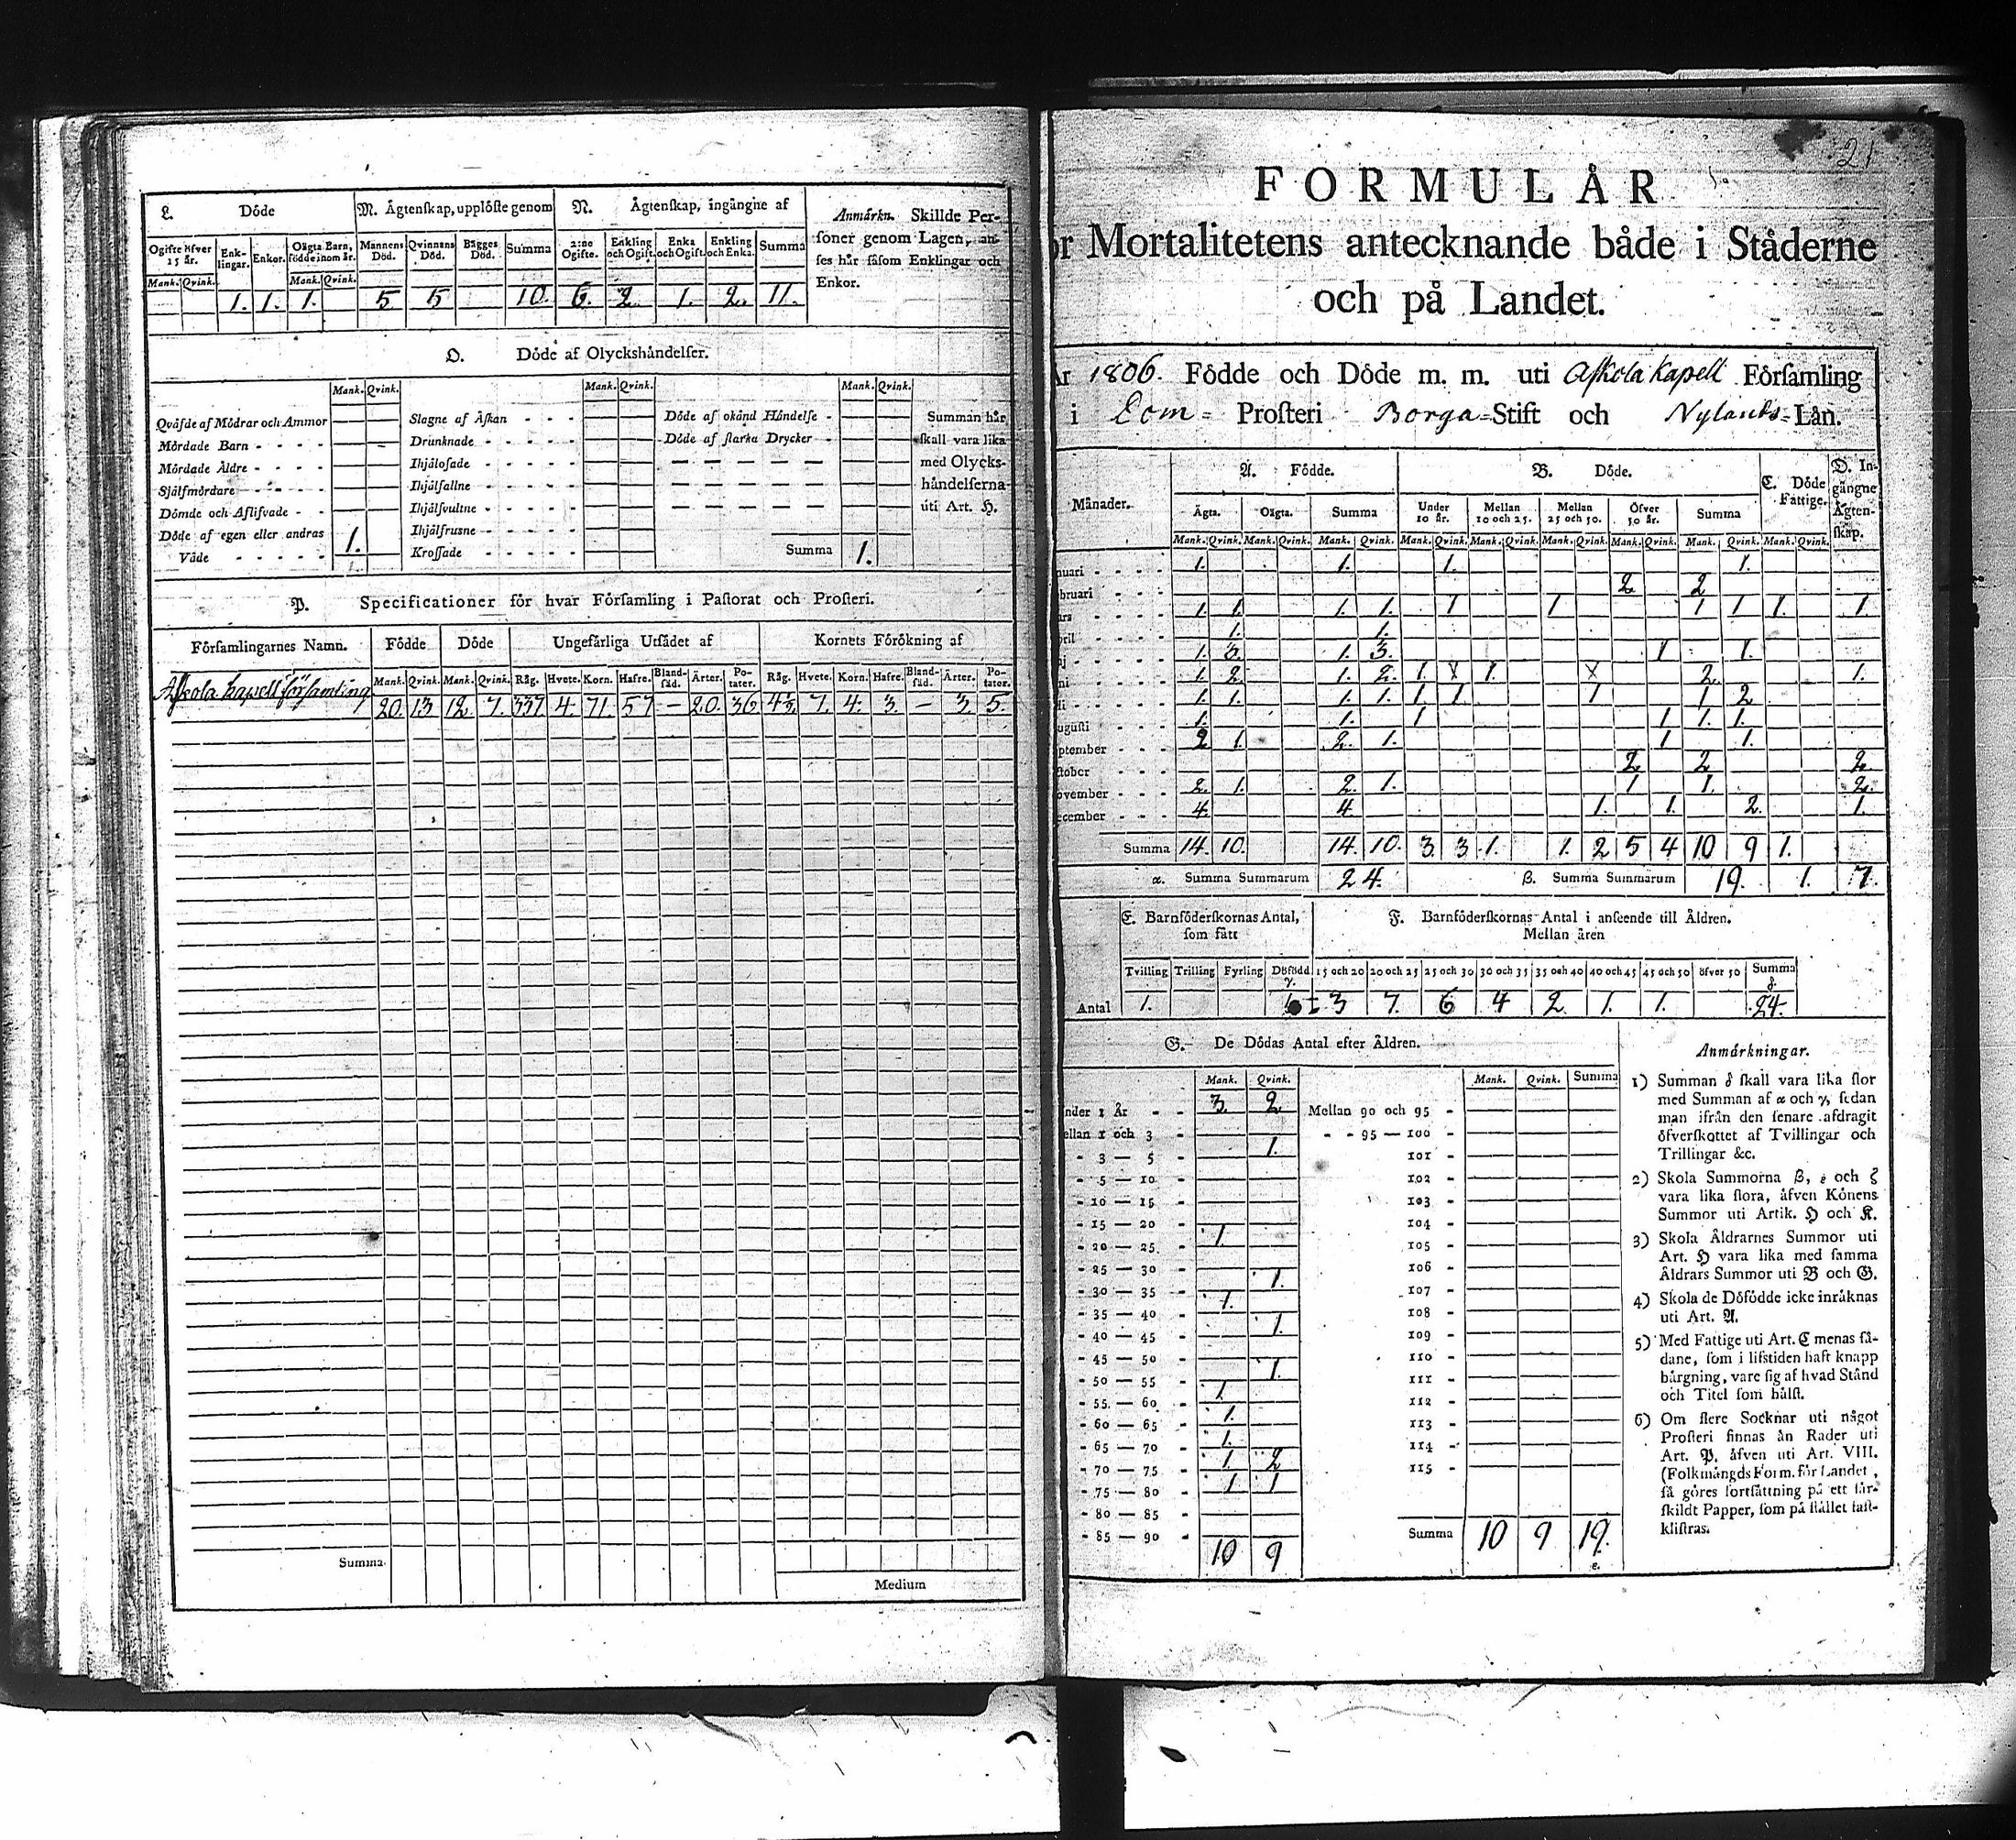 L. Döde
M. Ägtenſkap, upplöſte genom
N. Ägtenſkap, ingångne af
Anmärkn. Skillde Per-
ſoner genom Lagen, an-
ſes här ſåſom Enklingar och
Enkor.
Ogifte öfver 15 år. Enk-lingar. Enkor. Oägta Barn, födde inom år. Mannens Död. Qvinnans Död. Bägges Död. Summa 2:ne Ogifte. Enkling och Ogift. Enka och Ogift. Enkling och Enka. Summa
Mank. Qvink. Mank. Qvink.
1. 1. 1. 5 5 10. 6. 2. 1. 2. 11.
O. Döde af Olyckshändelſer.
Mank. Qvink. Mank. Qvink. Mank. Qvink.
Qväfde af Mödrar och Ammor Slagne af Åſkan - - - Döde af okänd Händelſe - Summan här
Mördade Barn - - - - Drunknade - - - - - Döde af ſtarka Drycker - ſkall vara lika
Mördade Äldre - - - - Ihjälofade - - - - - med Olycks-
Själfmördare - - - - Ihjälfallne - - - - händelſerna
Dömde och Aflifvade - - Ihjälſvultne - - - - uti Art. H.
Döde af egen eller andras Ihjälfrusne - - - -
Våde - - - - - 1. Kroſſade - - - - - Summa 1.
P. Specificationer för hvar Förſamling i Paſtorat och Proſteri.
Förſamlingarnes Namn. Födde Döde Ungefärliga Utſädet af Kornets Förökning af
Mank. Qvink. Mank. Qvink. Råg. Hvete. Korn. Hafre. Bland-ſäd. Ärter. Po-tater. Råg. Hvete. Korn. Hafre. Bland-ſäd. Ärter. Po-tater.
Aſkola kapell förſamling 20. 13 12. 7. 337. 4. 71. 57 — 20. 36. 7. 4. 3. — 3. 5.
Summa
Medium
21
FORMULÅR
Mortalitetens antecknande både i Städerne
och på Landet.
1806. Födde och Döde m. m. uti Aſkola kapell Förſamling
i Dom- Proſteri Borga-Stift och Nylands-Län.
Månader. A. Födde. B. Döde. C. Döde Fattige. D. In-gångne Ägten-ſkap.
Ägta. Oägta. Summa Under 10 år. Mellan 10 och 25. Mellan 25 och 50. Öfver 50 år. Summa
Mank. Qvink. Mank. Qvink. Mank. Qvink. Mank. Qvink. Mank. Qvink. Mank. Qvink. Mank. Qvink. Mank. Qvink. Mank. Qvink.
nuari - - - - 1. 1. 1. 1.
bruari - - - - 2 2
ars - - - - 1. 1. 1. 1. 1 1 1 1 1. 1
pril - - - - 1. 1.
aj - - - - 1. 3. 1. 3. 1 1.
ni - - - - 1. 2. 1. 2. 1. 1. 2. 1.
li - - - - 1. 1. 1. 1. 1 1. 1 1 2
uguſti - - - 1. 1. 1 1 1. 1.
ptember - - - 2 1. 2. 1. 1 1.
ktober - - - 2 2 2.
ovember - - - 2. 1. 2. 1. 1 1. 2.
ecember - - - 4. 4. 1. 1. 2. 1.
Summa 14. 10. 14. 10. 3 3 1. 1. 2 5 4 10 9 1.
α. Summa Summarum 24. β. Summa Summarum 19. 1. 7.
E. Barnföderſkornas Antal, ſom fått
F. Barnföderſkornas Antal i anſeende till Åldren.
Mellan åren
Tvilling Trilling Fyrling Döfödd. γ. 15 och 20 20 och 25 25 och 30 30 och 35 35 och 40 40 och 45 45 och 50 öfver 50 Summa δ
Antal 1. 3 7. 6 4 2. 1. 1. 24.
G. De Dödas Antal efter Åldren.
Mank. Qvink. Mank. Qvink. Summa
nder 1 År - - 3. 2. Mellan 90 och 95 -
ellan 1 och 3 - - - 95 — 100 -
- 3 — 5 - 1. 101 -
- 5 — 10 - 102 -
- 10 — 15 - 103 -
- 15 — 20 - 104 -
- 20 — 25 - 1. 105 -
- 25 — 30 - 106 -
- 30 — 35 - 1. 107 -
- 35 — 40 - 1. 108 -
- 40 — 45 - 1. 109 -
- 45 — 50 - 110 -
- 50 — 55 - 1. 111 -
- 55 — 60 - 1. 112 -
- 60 — 65 - 1. 113 -
- 65 — 70 - 1. 114 -
- 70 — 75 - 1. 2 115 -
- 75 — 80 - 1 1
- 80 — 85 -
- 85 — 90 - Summa 10 9 19.
10 9 ε.
Anmärkningar.
1) Summan δ ſkall vara lika ſtor
med Summan af α och γ, ſedan
man ifrån den ſenare afdragit
öfverſkottet af Tvillingar och
Trillingar &c.
2) Skola Summorna β, ε och ζ
vara lika ſtora, äfven Könens
Summor uti Artik. H och K.
3) Skola Åldrarnes Summor uti
Art. H vara lika med ſamma
Åldrars Summor uti B och G.
4) Skola de Döfödde icke inräknas
uti Art. A.
5) Med Fattige uti Art. C menas ſå-
dane, ſom i lifstiden haft knapp
bärgning, vare ſig af hvad Stånd
och Titel ſom hälſt.
6) Om flere Socknar uti något
Proſteri finnas än Rader uti
Art. P, äfven uti Art. VIII.
(Folkmängds Form. för Landet,
ſå göres fortſättning på ett ſär-
ſkildt Papper, ſom på ſtället faſt-
kliſtras.